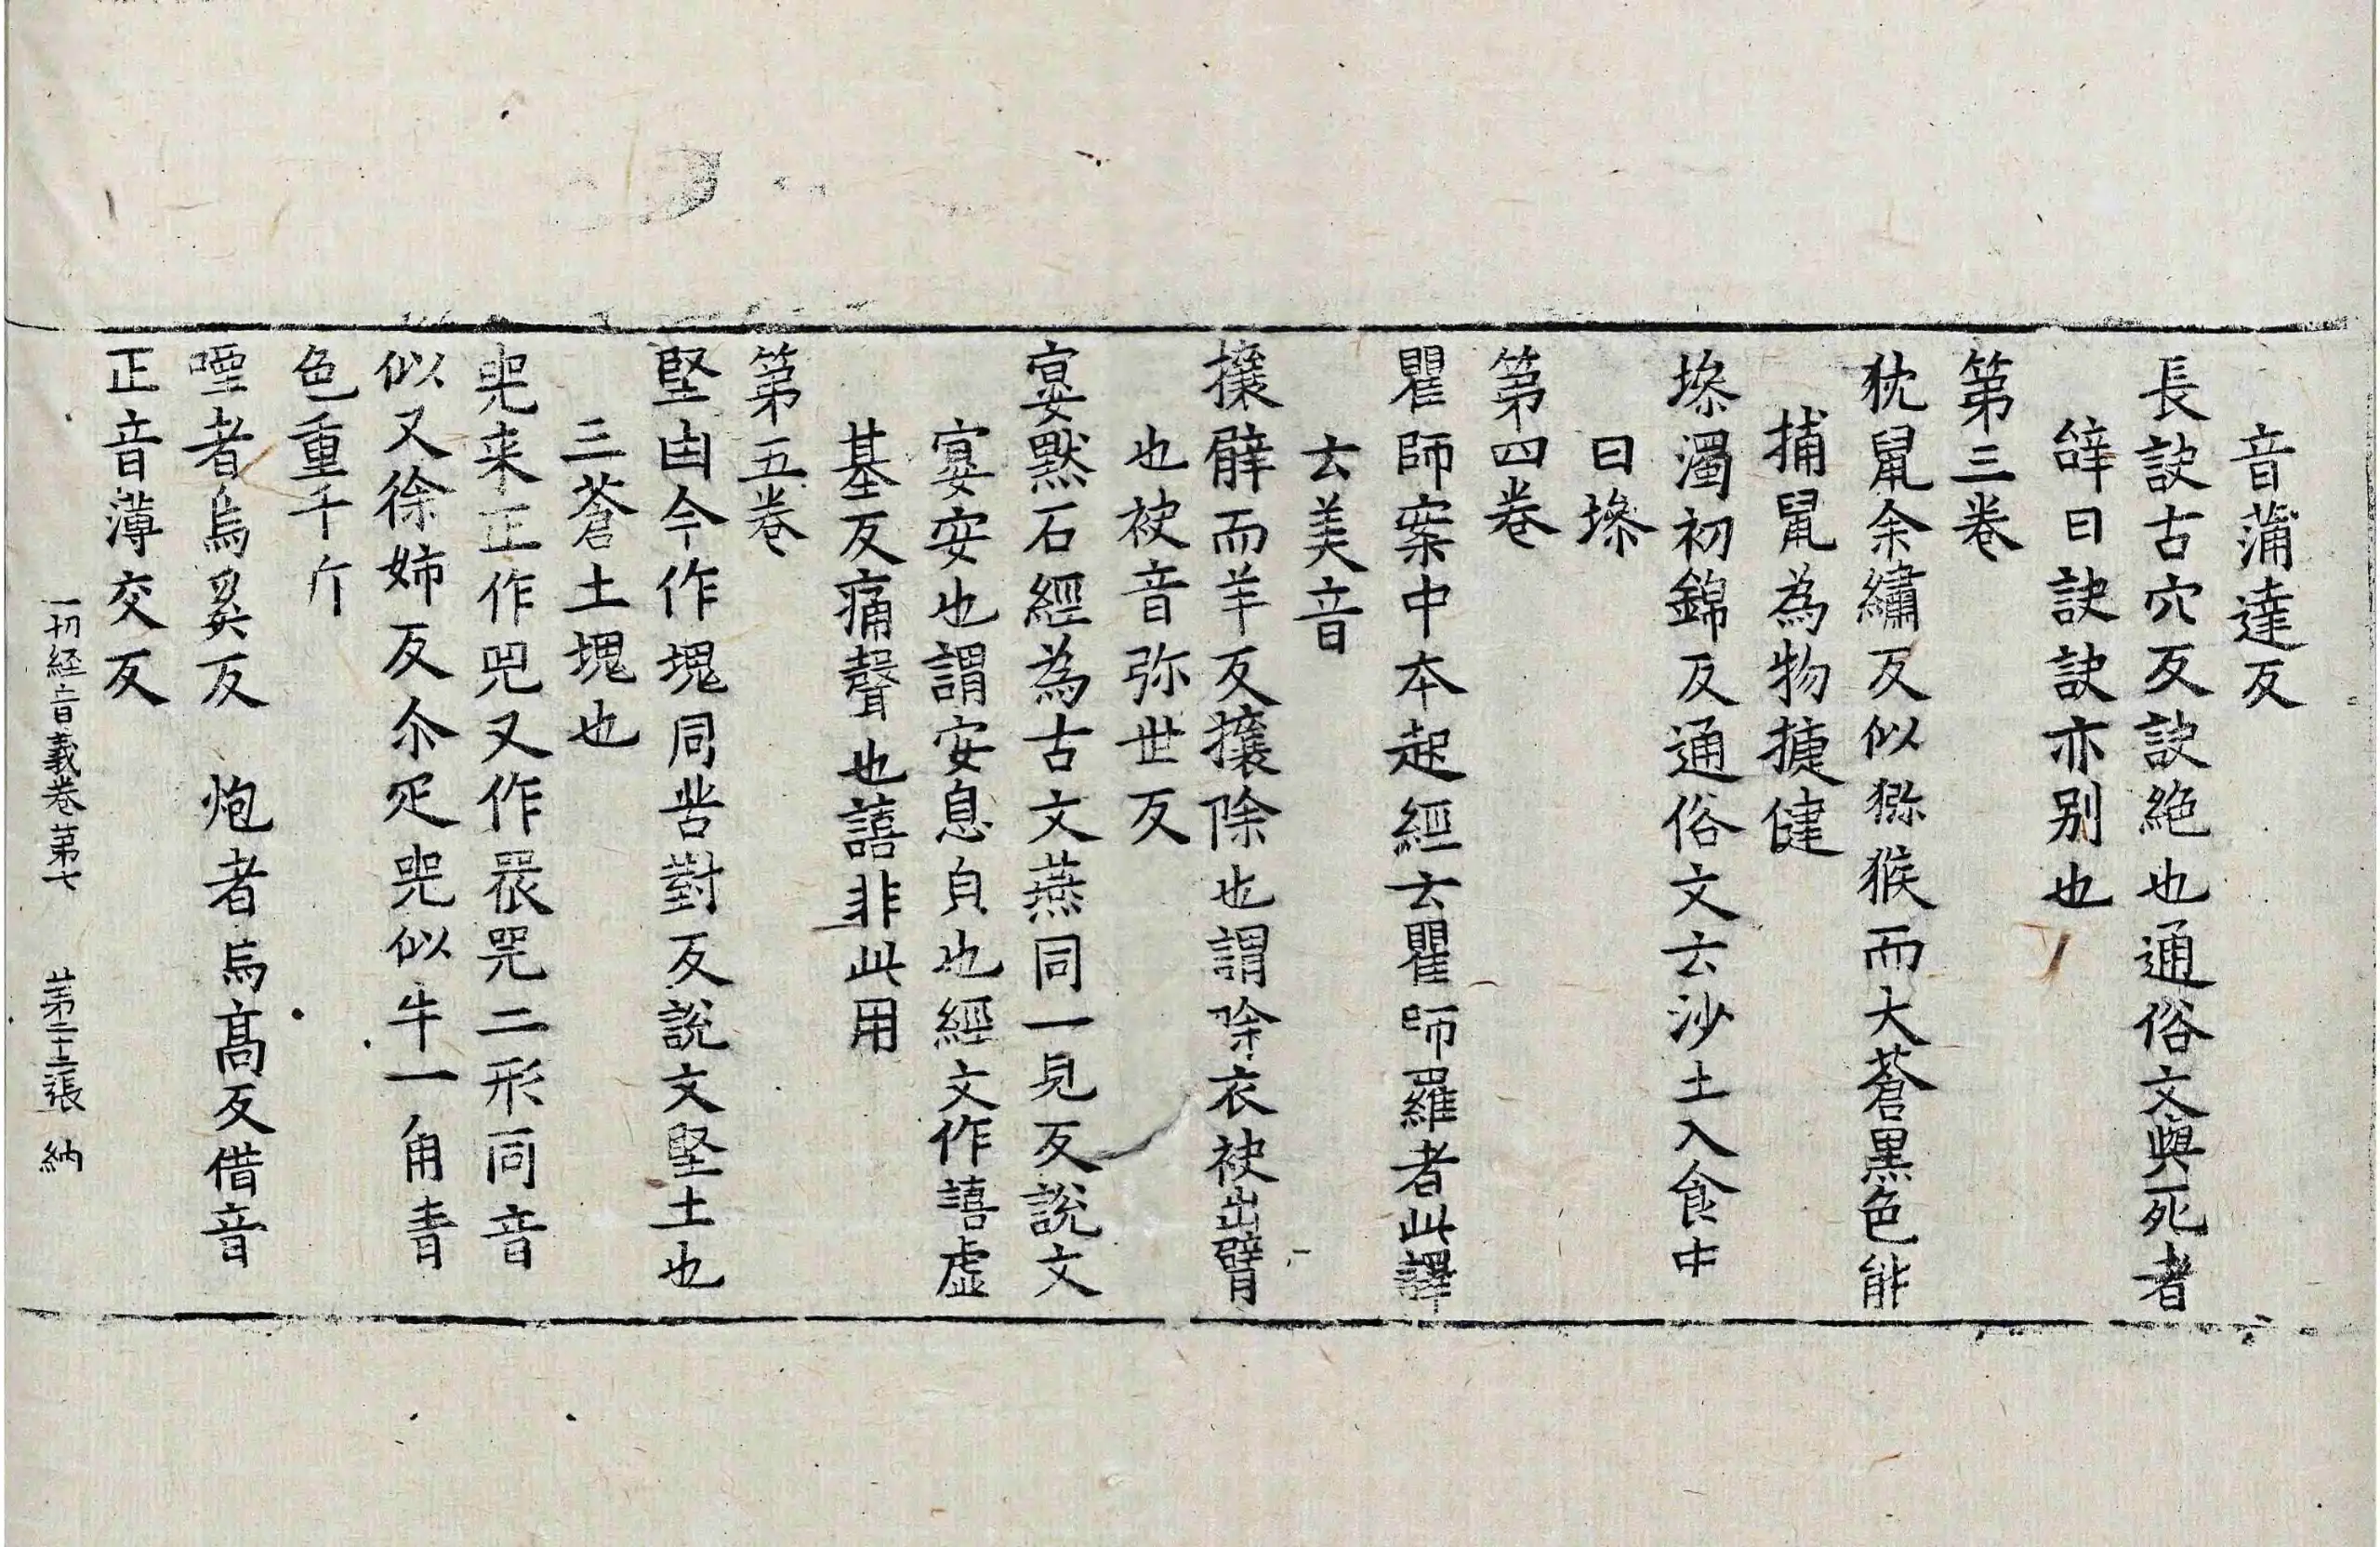 音蒲達反
長訣古穴反訣絶也通俗文與死者
辝曰訣訣亦別也
第三卷
狖鼠余繡反似獼猴而大蒼黑色能
捕鼠為物捷健
墋濁初錦反通俗文云沙土入食中
曰墋
第四卷
瞿師案中本起經云瞿師羅者此譯
云美音
攘臂而羊反攘除也謂除衣袂出臂
也袂音弥世反
宴默石經為古文燕同一見反說文
宴安也謂安息㒵也經文作譆虛
基反痛聲也譆非此用
第五卷
堅凷今作塊同苦對反說文堅土也
三蒼土塊也
兕来正作兕又作𧰽兕二形同音
似又徐姉反尒疋兕似牛一角青
色重千斤
堙者烏奚反　炮者烏高反借音
正音薄交反
一切経音義卷第七　第二十三張　納